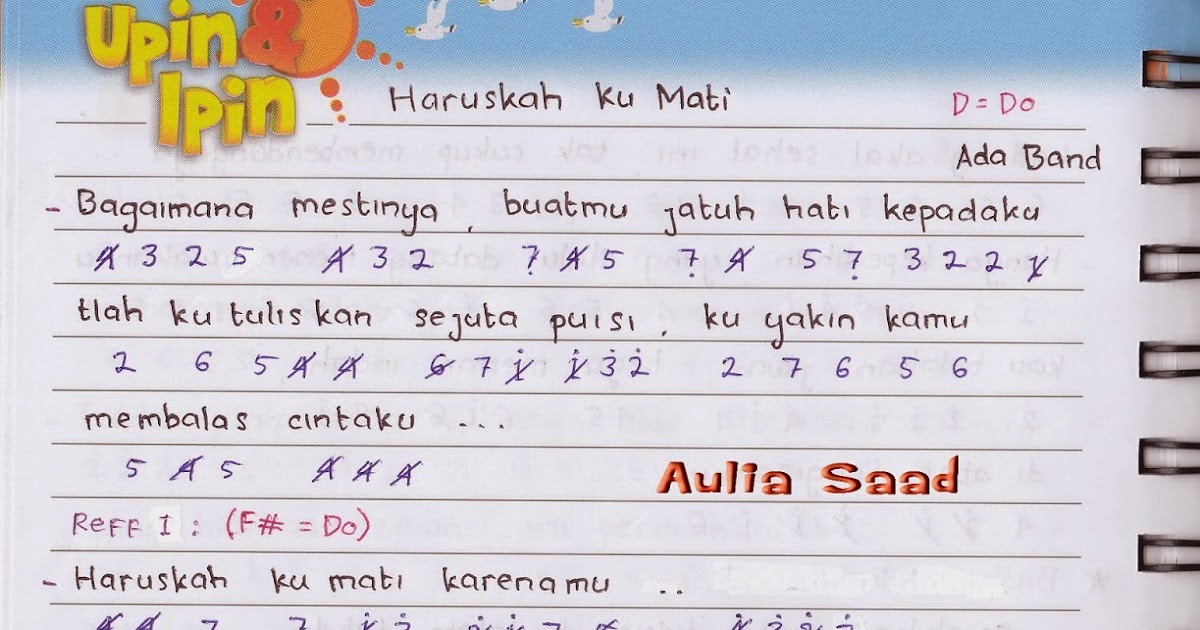 Upin & Ipin
Haruskah Ku Mati D = Do
Ada Band
- Bagaimana mestinya , buatmu jatuh hati kepadaku
4̸ 3 2 5 4̸ 3 2 7̣ 4̸ 5 7̣ 4̸ 5 7̣ 3 2 2 1̸
tlah ku tulis kan sejuta puisi , ku yakin kamu
2 6 5 4̸ 4̸ 6̸ 7 1̸̇ 1̸̇ 3̇ 2̇ 2 7 6 5 6
membalas cintaku ...
5 4̸ 5 4̸ 4̸ 4̸
Aulia Saad
Reff I : (F# = Do)
- Haruskah ku mati karenamu ..